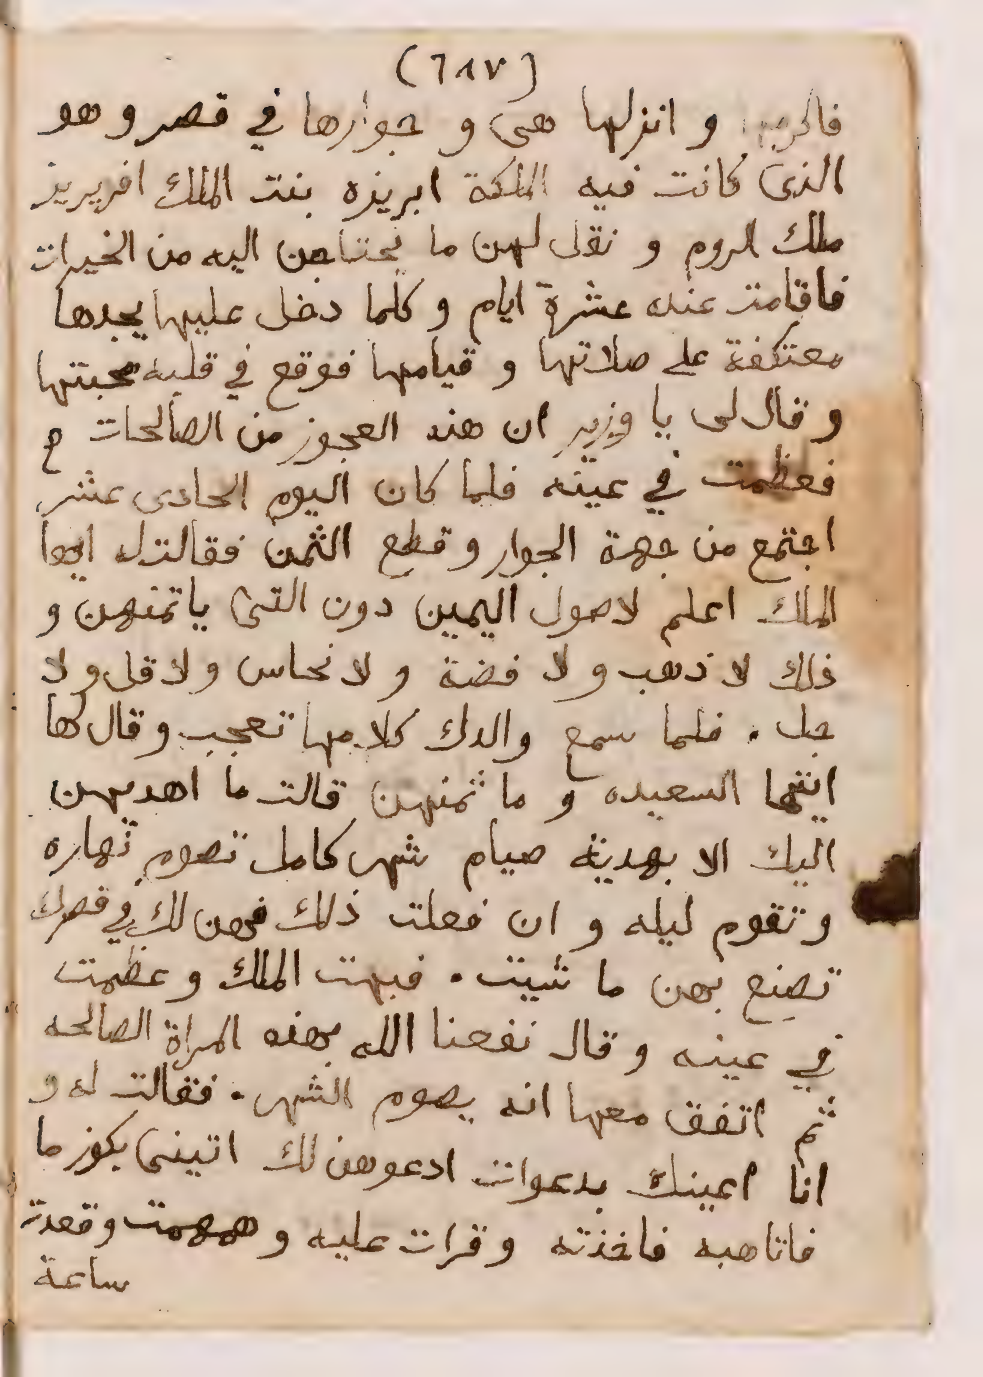 (٦٨٧)
و انزلها هى و جوارها في قصر و هو
الذى كانت فيه الملكة ابريزه بنت الملك افريريز
ملك الروم و نقل لهن ما يحتاجن اليه من الخيرات
فاقامت عنده عشرة ايام و كلما دخل عليها يجدها
معتكفة على صلاتها و قيامها فوقع في قلبه محبتها
و قال لى يا وزير ان هذه العجوز من الصالحات
فعظمت في عينه فلما كان اليوم الحادى عشر
اجتمع من جهة الجوار و قطع الثمن فقالت له ايها
الملك اعلم دون التى ياتمنهن و
ذلك لا ذهب و لا فضة و لا نحاس و لا قل و لا
جل . فلما سمع والدك كلامها تعجب و قال لها
ايتها السعيده و ما ثمنهن قالت ما اهديهن
اليك الا بهدية صيام شهر كامل تصوم نهاره
و تقوم ليله و ان فعلت ذلك فهن لك في قصرك
تصنع بهن ما شيت . فبهت الملك و عظمت
في عينه و قال نفعنا الله بهذه المراة الصالحه
ثم اتفق معها انه يصوم الشهر . فقالت له و
انا اعينك بدعوات ادعوهن لك اتينى بكوز ما
فاتاها به فاخذته و قرات عليه و همهمت و قعدت
ساعة